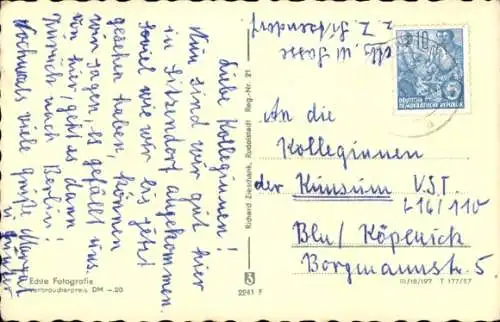 Liebe Kolleginnen!
Nun sind wir gut hier
in Sitzendorf angekommen.
Soviel wie wir bis jetzt
gesehen haben, können
wir sagen, es gefällt uns.
hier geht es dann
zurück nach Berlin!
Nochmals viele Grüße
Echte Fotografie
Verbraucherpreis DM -.20
Richard Zieschank, Rudolstadt Reg.-Nr. 21
2241 F
z. Z. Sitzendorf
10
DEUTSCHE
DEMOKRATISCHE REPUBLIK
An die
Kolleginnen
der Konsum V.S.T.
L16/110
Bln/Köpenick
Borgmannstr. 5
III/18/197 T 177/57